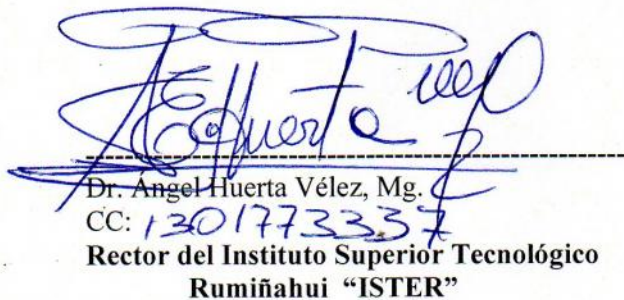 Dr. Ángel Huerta Vélez, Mg.
CC: 1301773337
Rector del Instituto Superior Tecnológico
Rumiñahui “ISTER”